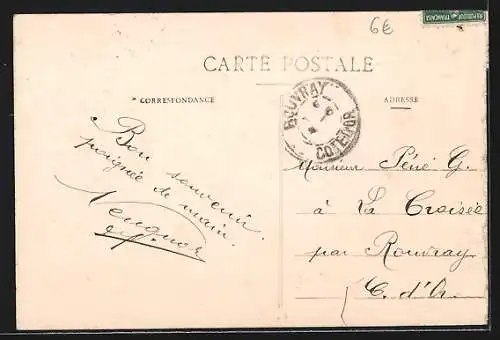 6€
REPUBLIQUE FRANÇAISE
CARTE POSTALE
CORRESPONDANCE
ADRESSE
ROUVRAY
COTE-D'OR
Bon souvenir
poignée de main.
Monsieur Péné G.
à La Croisée
par Rouvray
C. d'Or